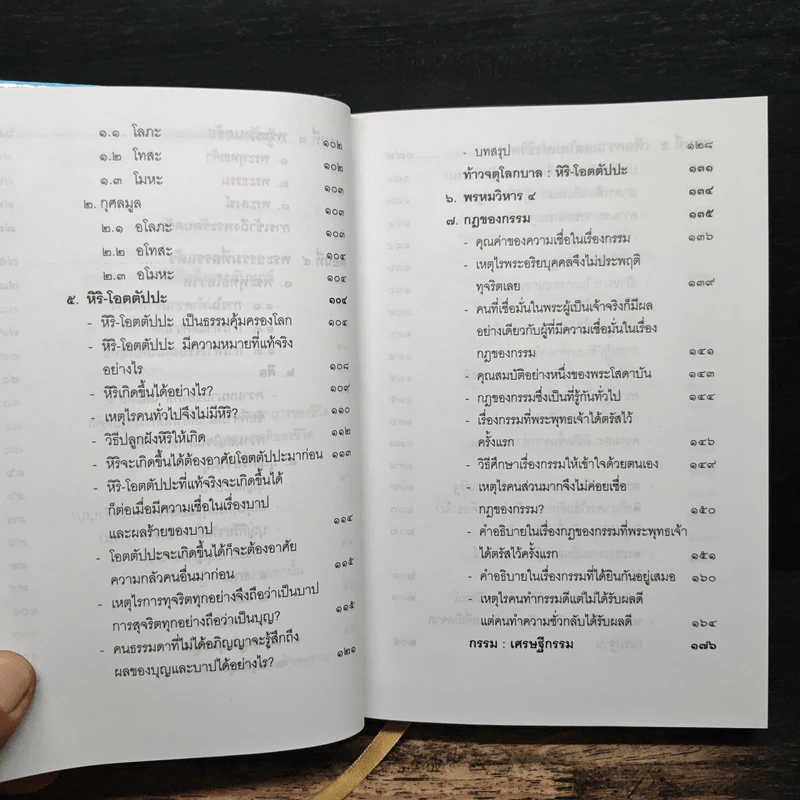 ๑.๑ โลภะ ๑๐๒
๑.๒ โทสะ ๑๐๒
๑.๓ โมหะ ๑๐๓
๒. กุศลมูล ๑๐๓
๒.๑ อโลภะ ๑๐๓
๒.๒ อโทสะ ๑๐๔
๒.๓ อโมหะ ๑๐๔
๕. หิริ-โอตตัปปะ ๑๐๔
- หิริ-โอตตัปปะ เป็นธรรมคุ้มครองโลก ๑๐๔
- หิริ-โอตตัปปะ มีความหมายที่แท้จริง
อย่างไร ๑๐๘
- หิริเกิดขึ้นได้อย่างไร? ๑๐๙
- เหตุไรคนทั่วไปจึงไม่มีหิริ? ๑๑๐
- วิธีปลูกฝังหิริให้เกิด ๑๑๒
- หิริจะเกิดขึ้นได้ต้องอาศัยโอตตัปปะมาก่อน ๑๑๓
- หิริ-โอตตัปปะที่แท้จริงจะเกิดขึ้นได้
ก็ต่อเมื่อมีความเชื่อในเรื่องบาป
และผลร้ายของบาป ๑๑๔
- โอตตัปปะจะเกิดขึ้นได้ก็จะต้องอาศัย
ความกลัวคนอื่นมาก่อน ๑๑๕
- เหตุไรการทุจริตทุกอย่างจึงถือว่าเป็นบาป
การสุจริตทุกอย่างถือว่าเป็นบุญ? ๑๑๕
- คนธรรมดาที่ไม่ได้อภิญญาจะรู้สึกถึง
ผลของบุญและบาปได้อย่างไร? ๑๒๑
- บทสรุป ๑๒๘
ท้าวจตุโลกบาล : หิริ-โอตตัปปะ ๑๓๑
๖. พรหมวิหาร ๔ ๑๓๔
๗. กฎของกรรม ๑๓๕
- คุณค่าของความเชื่อในเรื่องกรรม ๑๓๖
- เหตุไรพระอริยบุคคลจึงไม่ประพฤติ
ทุจริตเลย ๑๓๙
- คนที่เชื่อมั่นในพระผู้เป็นเจ้าจริงก็มีผล
อย่างเดียวกับผู้ที่มีความเชื่อมั่นในเรื่อง
กฎของกรรม ๑๔๑
- คุณสมบัติอย่างหนึ่งของพระโสดาบัน ๑๔๓
- กฎของกรรมซึ่งเป็นที่รู้กันทั่วไป ๑๔๔
- เรื่องกรรมที่พระพุทธเจ้าได้ตรัสไว้
ครั้งแรก ๑๔๖
- วิธีศึกษาเรื่องกรรมให้เข้าใจด้วยตนเอง ๑๔๙
- เหตุไรคนส่วนมากจึงไม่ค่อยเชื่อ
กฎของกรรม? ๑๕๐
- คำอธิบายในเรื่องกฎของกรรมที่พระพุทธเจ้า
ได้ตรัสไว้ครั้งแรก ๑๕๑
- คำอธิบายในเรื่องกรรมที่ได้ยินกันอยู่เสมอ ๑๖๐
- เหตุไรคนทำกรรมดีแต่ไม่ได้รับผลดี
แต่คนทำความชั่วกลับได้รับผลดี ๑๖๔
กรรม : เศรษฐีกรรม ๑๗๖